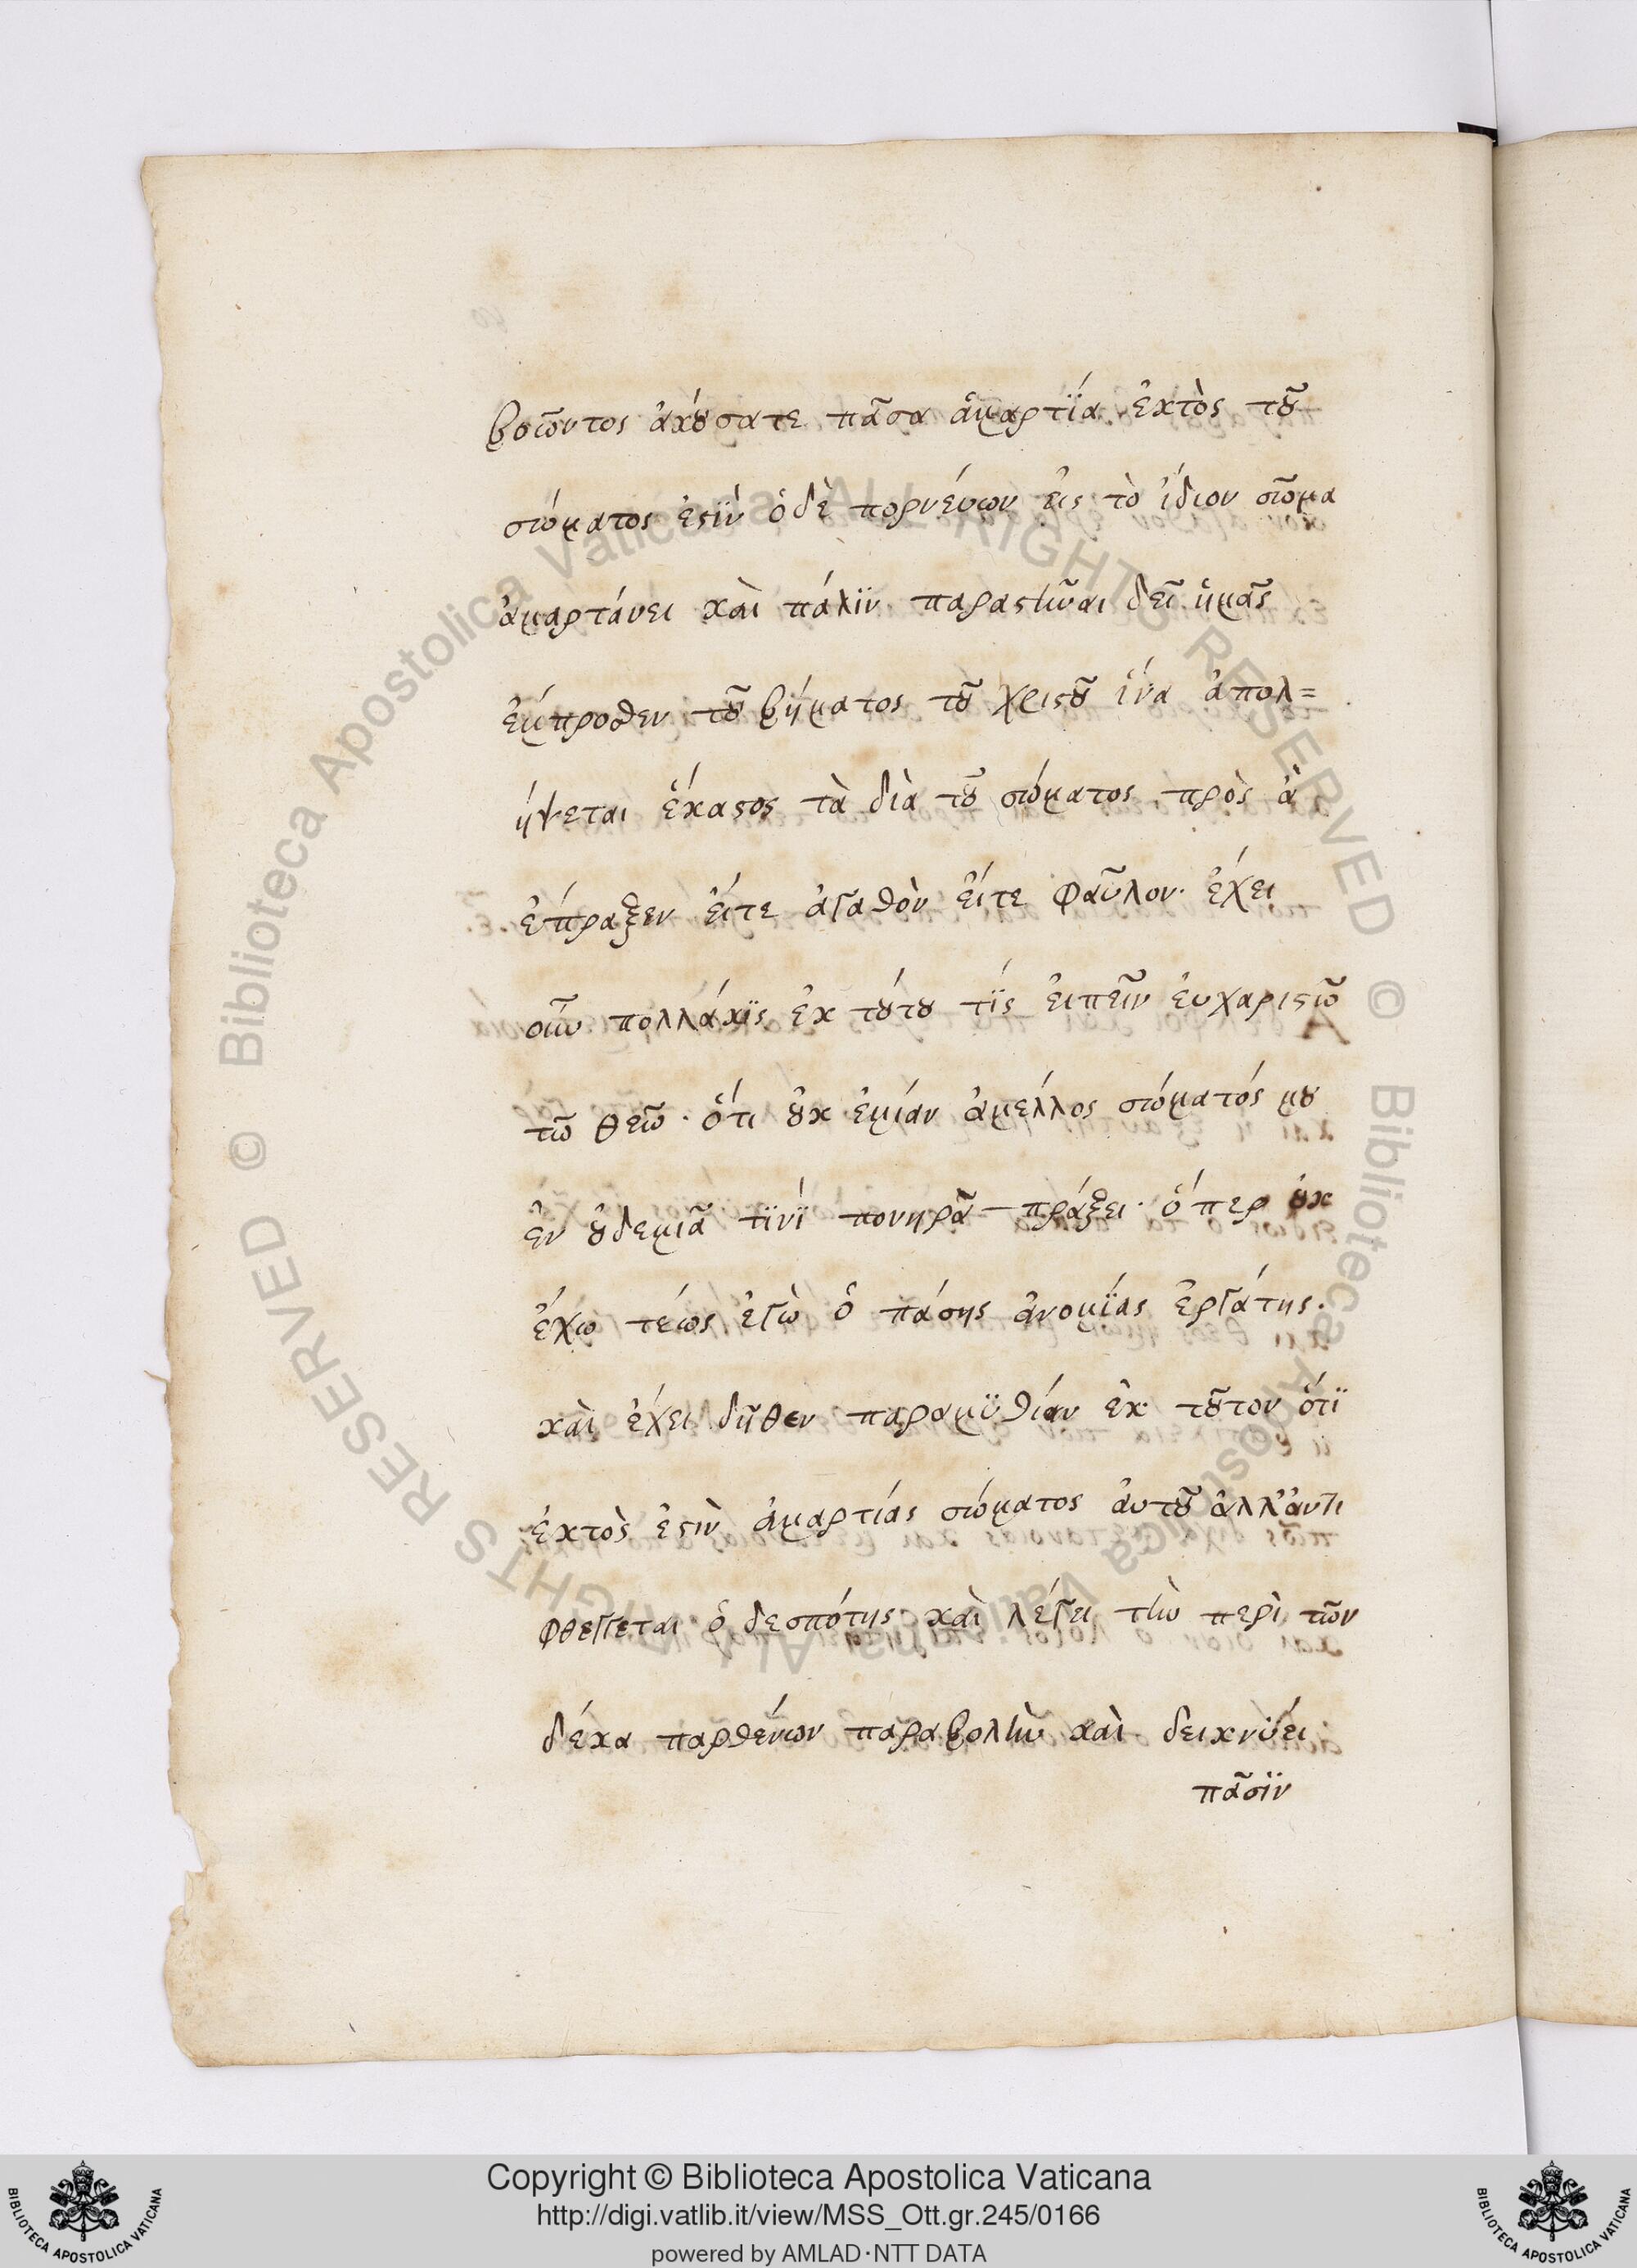 βοῶντος ἀκούσατε πᾶσα ἁμαρτΐα ἐκτὸς τοῦ
σώματος ἐστΐν ὁδὲ πορνέυων ἐις τὸ ἴδιον σῶμα
ἁμαρτάνει καὶ πάλϊν παραστῆναι δεῖ ἡμᾶς
ἔμπροσθεν τοῦ βήματος τοῦ χριστοῦ ἵνα ἀπολ=
ήψεται ἕκαστος τὰ διὰ τοῦ σώματος πρὸς ἃ
ἔπραξεν ἔιτε ἀγαθὸν ἔιτε φαῦλον· ἔχει
οὖν πολλάκϊς ἐκ τούτου τΐς ἐιπεῖν ἐυχαριστῶ
τῶ θεῶ· ὅτι οὐκ ἐμίαν ἀμέλλος σώματός μου
ἐν οὐδεμιᾶ τϊνΐ πονηρᾶ πράξει· ὅπερ οὐκ
ἔχω τέως ἐγὼ ὁ πάσης ἀνομΐας ἐργάτης·
καὶ ἔχει δῆθεν παραμϋθίαν ἐκ τοῦτον ὅτϊ
ἐκτὸς ἐστὶν ἁμαρτίας σώματος ἀυτοῦ ἀλλ'ἀντι
φθέγγεται ὁ δεσπότης καὶ λέγει τὴν περὶ τῶν
δέκα παρθένων παραβολὴν καὶ δεικνΰει
πᾶσϊν
Copyright © Biblioteca Apostolica Vaticana
http://digi.vatlib.it/view/MSS_Ott.gr.245/0166
powered by AMLAD·NTT DATA
BIBLIOTECA APOSTOLICA VATICANA
BIBLIOTECA APOSTOLICA VATICANA
© Biblioteca Apostolica Vaticana ALL RIGHTS RESERVED
© Biblioteca Apostolica Vaticana ALL RIGHTS RESERVED